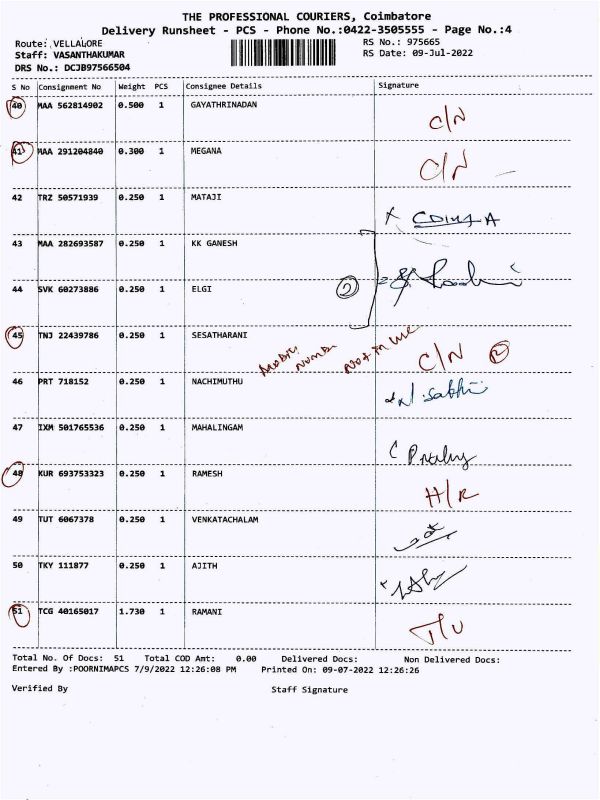 THE PROFESSIONAL COURIERS, Coimbatore
Delivery Runsheet - PCS - Phone No.:0422-3505555 - Page No.:4
Route: VELLALORE
RS No.: 975665
Staff: VASANTHAKUMAR
RS Date: 09-Jul-2022
DRS No.: DCJB97566504
S No Consignment No Weight PCS Consignee Details Signature
40 MAA 562814902 0.500 1 GAYATHRINADAN C/N
41 MAA 291204840 0.300 1 MEGANA C/N
42 TRZ 50571939 0.250 1 MATAJI
43 MAA 282693587 0.250 1 KK GANESH
44 SVK 60273886 0.250 1 ELGI 2
45 TNJ 22439786 0.250 1 SESATHARANI Not in use C/N
46 PRT 718152 0.250 1 NACHIMUTHU N. Sakthi
47 IXM 501765536 0.250 1 MAHALINGAM
48 KUR 693753323 0.250 1 RAMESH H/R
49 TUT 6067378 0.250 1 VENKATACHALAM
50 TKY 111877 0.250 1 AJITH
51 TCG 40165017 1.730 1 RAMANI
Total No. Of Docs: 51 Total COD Amt: 0.00 Delivered Docs: Non Delivered Docs:
Entered By :POORNIMAPCS 7/9/2022 12:26:08 PM Printed On: 09-07-2022 12:26:26
Verified By Staff Signature